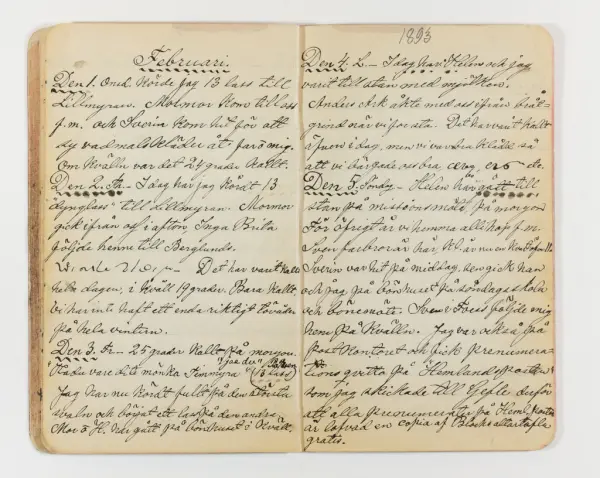 Februari.
Den 1. Onsd. Körde jag 13 lass till
Lillmyran. Mormor kom till oss
f.m. och Sverin kom hit för att
sy vadmalskläder åt far o mig.
Om kvällen var det 24 grader kallt.
Den 2. To. - I dag har jag kördt 13
"dynglass" till Lillmyran. Mormor
gick ifrån oss i afton, Inga Brita
följde henne till Berglunds.
Det har varit kallt
hela dagen, i kväll 19 grader. Bara kallt.
Vi har inte haft ett enda riktigt töväder
på hela vintern.
Den 3. Fr. - 25 grader kallt på morgon.
"jaa du"
(13 lass)
Jag har nu kördt fullt på den största
och börjat ett lass på den andra.
Mor o H. har gått på bönhuset i kväll.
1893
Den 4. L. - I dag har Helin och jag
varit till stan med mjölken.
Anders Ark åkte med oss ifrån
grind när vi for sta. Det har varit kallt
i dag, men vi var bra klädda så
att vi bärgade oss bra
Den 5. Sönd. - Helin har gått till
stan på missionsmöte på morgon
För öfrigt är vi hemma allihop f.m.
Sven farbror är här. Kl är nu en
Sverin var hit på middag, sen gick han
och jag på bönhuset på söndagsskola
och bönemöte. Sven i följde mig
hem på kvälln. Jag var också på
postkontoret och fick prenumera-
tions qvitto på Hemlandsposten
som jag skickade till Gefle derför
att alla prenumeranter på Heml. posten
är lofvad en copia af Blocks altartafla
gratis.